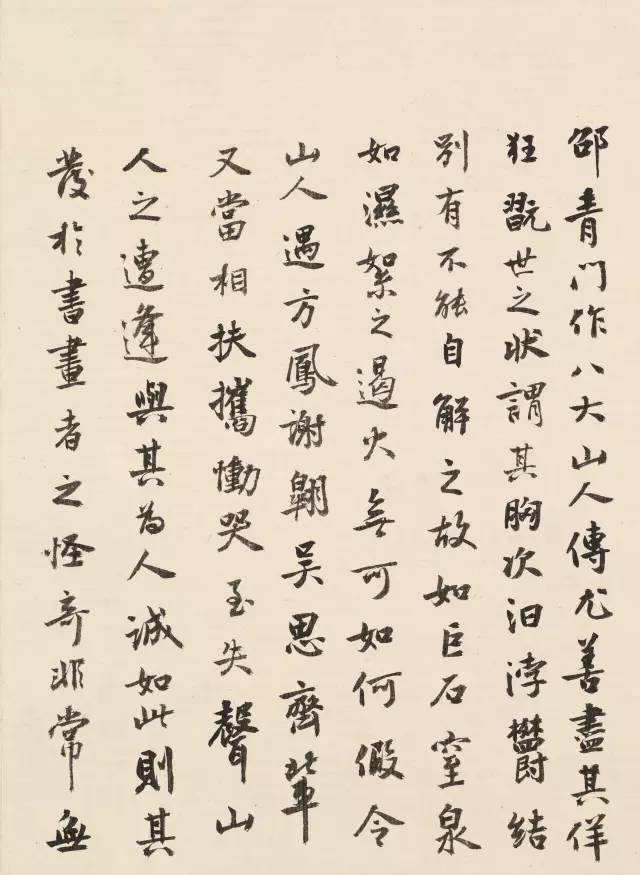 邵青門作八大山人傳尤善盡其佯
狂翫世之狀謂其胸次汩浡鬱結
別有不能自解之故如巨石窒泉
如濕絮之遏火無可如何假令
山人遇方鳳謝翱吳思齊輩
又當相扶攜慟哭至失聲山
人之遭逢與其為人誠如此則其
發於書畫者之怪奇非常無